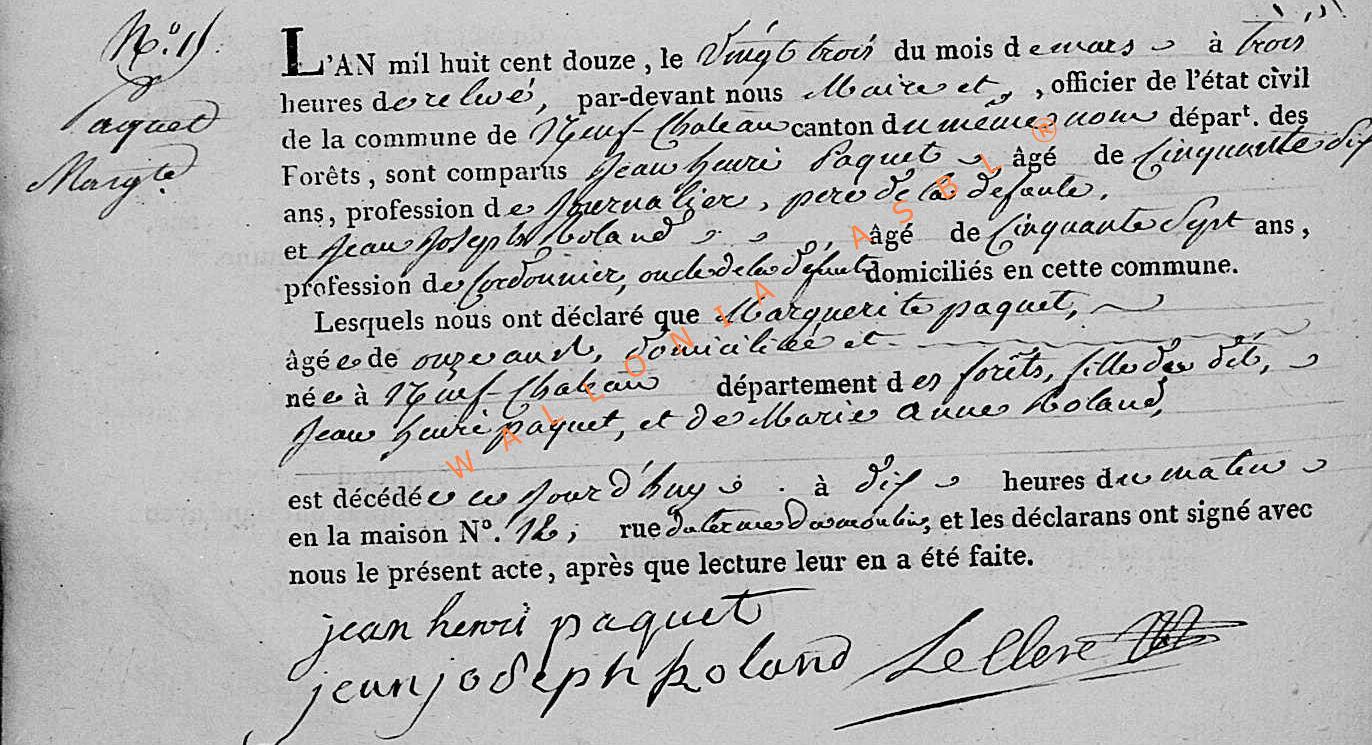 N.º 11.
Paquet
Margte.
L'AN mil huit cent douze, le Vingt trois du mois de mars à trois
heures de relevé, par-devant nous Maire et, officier de l'état civil
de la commune de Neuf-Chateau canton du même nom départ. des
Forêts, sont comparus Jean henri Paquet âgé de Cinquante dix
ans, profession de Journalier, pere de la defunte,
et Jean Joseph Roland, âgé de Cinquante Sept ans,
profession de Cordonnier, oncle de la défunte domiciliés en cette commune.
Lesquels nous ont déclaré que Marguerite paquet,
âgée de onze ans, domiciliée et
née à Neuf-Chateau département des forêts, fille des dits,
Jean henri paquet, et de Marie Anne Roland,
est décédée ce jour d'huy à dix heures du matin
en la maison Nº. 12, rue du, et les déclarans ont signé avec
nous le présent acte, après que lecture leur en a été faite.
jean henri paquet
jean joseph Roland LeClere
WALLONIA ASBL ®